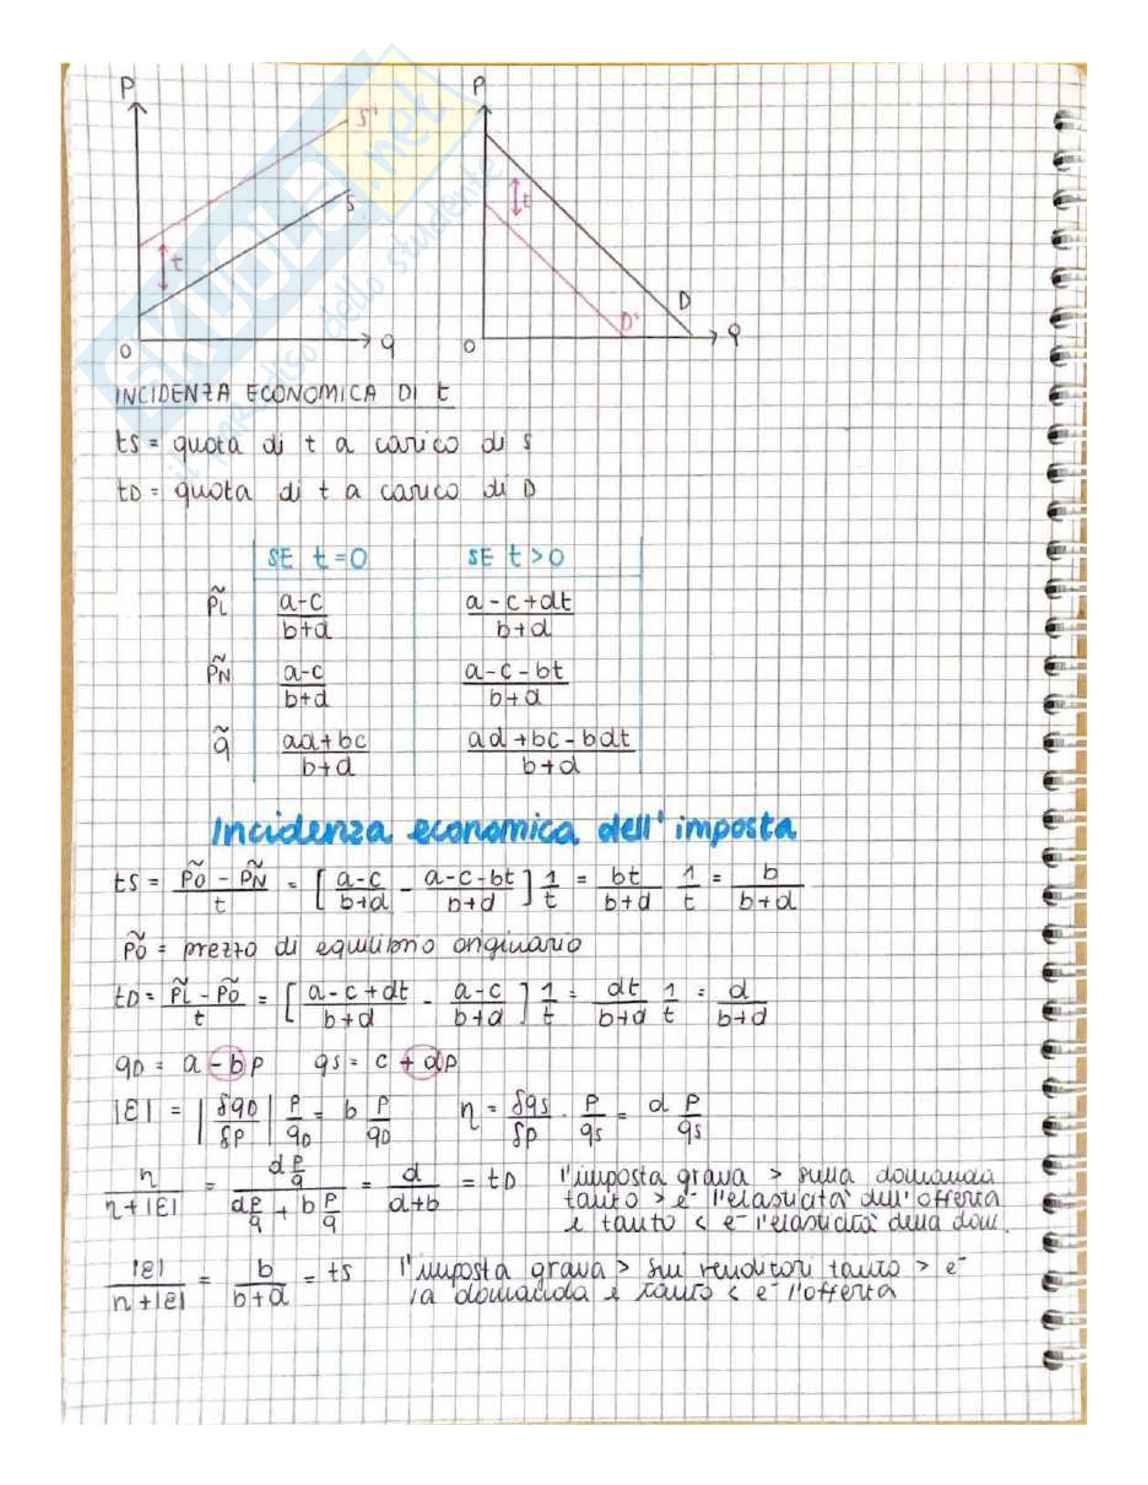 P
S'
S
t
0
q
P
t
D
D'
0
q
INCIDENZA ECONOMICA DI t
tS = quota di t a carico di S
tD = quota di t a carico di D
SE t=0 SE t>0
p̃L (a-c)/(b+d) (a-c+dt)/(b+d)
p̃N (a-c)/(b+d) (a-c-bt)/(b+d)
q̃ (ad+bc)/(b+d) (ad+bc-bdt)/(b+d)
Incidenza economica dell' imposta
tS = (p̃O - p̃N)/t = [(a-c)/(b+d) - (a-c-bt)/(b+d)] 1/t = bt/(b+d) 1/t = b/(b+d)
p̃O = prezzo di equilibrio originario
tD = (p̃L - p̃O)/t = [(a-c+dt)/(b+d) - (a-c)/(b+d)] 1/t = dt/(b+d) 1/t = d/(b+d)
qD = a - bp qS = c + dp
|Ɛ| = |δqD/δp| p/qD = b p/qD η = δqS/δp · p/qS = d p/qS
η/(η+|Ɛ|) = (d p/q)/(d p/q + b p/q) = d/(d+b) = tD l'imposta grava > sulla domanda
tanto > è l'elasticità dell'offerta
e tanto < è l'elasticità della dom.
|Ɛ|/(η+|Ɛ|) = b/(b+d) = tS l'imposta grava > sui venditori tanto > è
la domanda e tanto < è l'offerta
SKUOLA.net
il paradiso dello studente